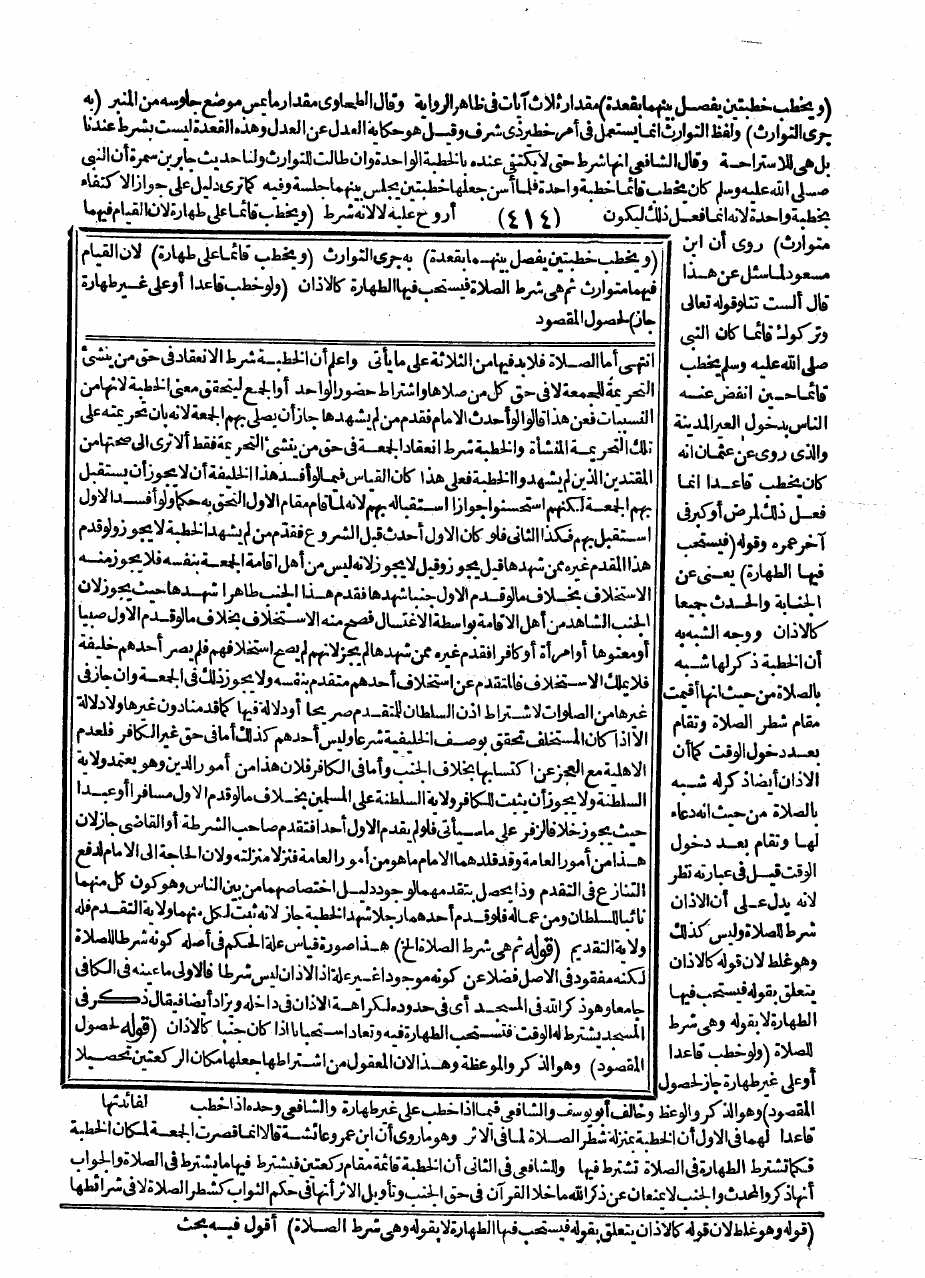 (ويخطب خطبتين يفصل بينهما بقعدة) مقدار ثلاث آيات في ظاهر الرواية وقال الطحاوى مقدار ما يمس موضع جلوسه من المنبر (به
جرى التوارث) ولفظ التوارث انما يستعمل في أمر خطير ذى شرف وقيل هو حكاية العدل عن العدل وهذه القعدة ليست بشرط عندنا
بل هى للاستراحة وقال الشافعى انها شرط حتى لا يكتفى عنده بالخطبة الواحدة وان طالت للتوارث ولنا حديث جابر بن سمرة أن النبى
صلى الله عليه وسلم كان يخطب قائما خطبة واحدة فلما أسن جعلها خطبتين يجلس بينهما جلسة وفيه كما ترى دليل على جواز الاكتفاء
بخطبة واحدة لانه انما فعل ذلك ليكون (٤١٤) أروح عليه لا لانه شرط (ويخطب قائما على طهارة لان القيام فيهما
متوارث) روى أن ابن
مسعود لما سئل عن هذا
قال ألست تتلو قوله تعالى
وتركوك قائما كان النبى
صلى الله عليه وسلم يخطب
قائما حين انفض عنه
الناس بدخول العير المدينة
والذى روى عن عثمان انه
كان يخطب قاعدا انما
فعل ذلك لمرض أو كبر فى
آخر عمره وقوله (فيستحب
فيها الطهارة) يعنى عن
الجنابة والحدث جميعا
كالاذان ووجه الشبه به
أن الخطبة ذكر لها شبه
بالصلاة من حيث انها أقيمت
مقام شطر الصلاة وتقام
بعد دخول الوقت كما أن
الاذان أيضا ذكر له شبه
بالصلاة من حيث انه دعاء
لها وتقام بعد دخول
الوقت قيل فى عبارته نظر
لانه يدل على أن الاذان
شرط للصلاة وليس كذلك
وهو غلط لان قوله كالاذان
يتعلق بقوله فيستحب فيها
الطهارة لا بقوله وهى شرط
للصلاة (ولو خطب قاعدا
أو على غير طهارة جاز لحصول
(ويخطب خطبتين يفصل بينهما بقعدة) به جرى التوارث (ويخطب قائما على طهارة) لان القيام
فيهما متوارث ثم هى شرط الصلاة فيستحب فيها الطهارة كالاذان (ولو خطب قاعدا أو على غير طهارة
جاز) لحصول المقصود
انتهى أما الصلاة فلا بد فيها من الثلاثة على ما يأتى واعلم أن الخطبة شرط الانعقاد فى حق من ينشئ
التحريمة للجمعة لا فى حق كل من صلاها واشتراط حضور الواحد أو الجمع ليتحقق معنى الخطبة لانها من
النسبيات فعن هذا قالوا لو أحدث الامام فقدم من لم يشهدها جاز أن يصلى بهم الجمعة لانه بان تحريمته على
تلك التحريمة المنشأة والخطبة شرط انعقاد الجمعة فى حق من ينشئ التحريمة فقط ألا ترى الى صحتها من
المقتدين الذين لم يشهدوا الخطبة فعلى هذا كان القياس فيما لو أفسد هذا الخليفة أن لا يجوز أن يستقبل
بهم الجمعة لكنهم استحسنوا جواز استقباله بهم لانه لما قام مقام الاول التحق به حكما ولو أفسد الاول
استقبل بهم فكذا الثانى فلو كان الاول أحدث قبل الشروع فقدم من لم يشهد الخطبة لا يجوز ولو قدم
هذا المقدم غيره ممن شهدها قيل يجوز وقيل لا يجوز لانه ليس من أهل اقامة الجمعة بنفسه فلا يجوز منه
الاستخلاف بخلاف ما لو قدم الاول جنبا شهدها فقدم هذا الجنب طاهرا شهدها حيث يجوز لان
الجنب الشاهد من أهل الاقامة بواسطة الاغتسال فصح منه الاستخلاف بخلاف ما لو قدم الاول صبيا
أو معتوها أو امرأة أو كافرا فقدم غيره ممن شهدها لم يجز لانهم لم يصح استخلافهم فلم يصر أحدهم خليفة
فلا يملك الاستخلاف فالمتقدم عن استخلاف أحدهم متقدم بنفسه ولا يجوز ذلك فى الجمعة وان جاز فى
غيرها من الصلوات لاشتراط اذن السلطان للمتقدم صريحا أو دلالة فيها كما قدمنا دون غيرها ولا دلالة
الا اذا كان المستخلف تحقق بوصف الخليفية شرعا وليس أحدهم كذلك أما فى حق غير الكافر فلعدم
الاهلية مع العجز عن اكتسابها بخلاف الجنب وأما فى الكافر فلان هذا من أمور الدين وهو يعتمد ولاية
السلطنة ولا يجوز أن يثبت للكافر ولاية السلطنة على المسلمين بخلاف ما لو قدم الاول مسافرا أو عبدا
حيث يجوز خلافا لزفر على ما سيأتى فلو لم يقدم الاول أحدا فتقدم صاحب الشرطة أو القاضى جاز لان
هذا من أمور العامة وقد قلدهما الامام ما هو من أمور العامة فنزلا منزلته ولان الحاجة الى الامام لدفع
التنازع فى التقدم وذا يحصل بتقدمهما لوجود دليل اختصاصهما من بين الناس وهو كون كل منهما
نائبا للسلطان ومن عماله فلو قدم أحدهما رجلا شهد الخطبة جاز لانه ثبت لكل منهما ولاية التقدم فله
ولاية التقديم (قوله ثم هى شرط الصلاة الخ) هذا صورة قياس علة الحكم فى أصله كونه شرطا للصلاة
لكنه مفقود فى الاصل فضلا عن كونه موجودا غير علة اذ الاذان ليس شرطا فالاولى ما عينه فى الكافى
جامعا وهو ذكر الله فى المسجد أى فى حدوده لكراهة الاذان فى داخله ويزاد أيضا فيقال ذكر فى
المسجد يشترط له الوقت فتستحب الطهارة فيه وتعاد استحبابا اذا كان جنبا كالاذان (قوله لحصول
المقصود) وهو الذكر والموعظة وهذا لان المعقول من اشتراطها جعلها مكان الركعتين تحصيلا
لفائدتها
المقصود) وهو الذكر والوعظ وخالف أبو يوسف والشافعى فيما اذا خطب على غير طهارة والشافعى وحده اذا خطب
قاعدا لهما فى الاول أن الخطبة بمنزلة شطر الصلاة لما فى الاثر وهو ما روى أن ابن عمر وعائشة قالا انما قصرت الجمعة لمكان الخطبة
فكما تشترط الطهارة فى الصلاة تشترط فيها وللشافعى فى الثانى أن الخطبة قائمة مقام ركعتين فيشترط فيها ما يشترط فى الصلاة والجواب
أنها ذكر والمحدث والجنب لا يمنعان عن ذكر الله ما خلا القرآن فى حق الجنب وتأويل الاثر أنها فى حكم الثواب كشطر الصلاة لا فى شرائطها
(قوله وهو غلط لان قوله كالاذان يتعلق بقوله فيستحب فيها الطهارة لا بقوله وهى شرط الصلاة) أقول فيه بحث